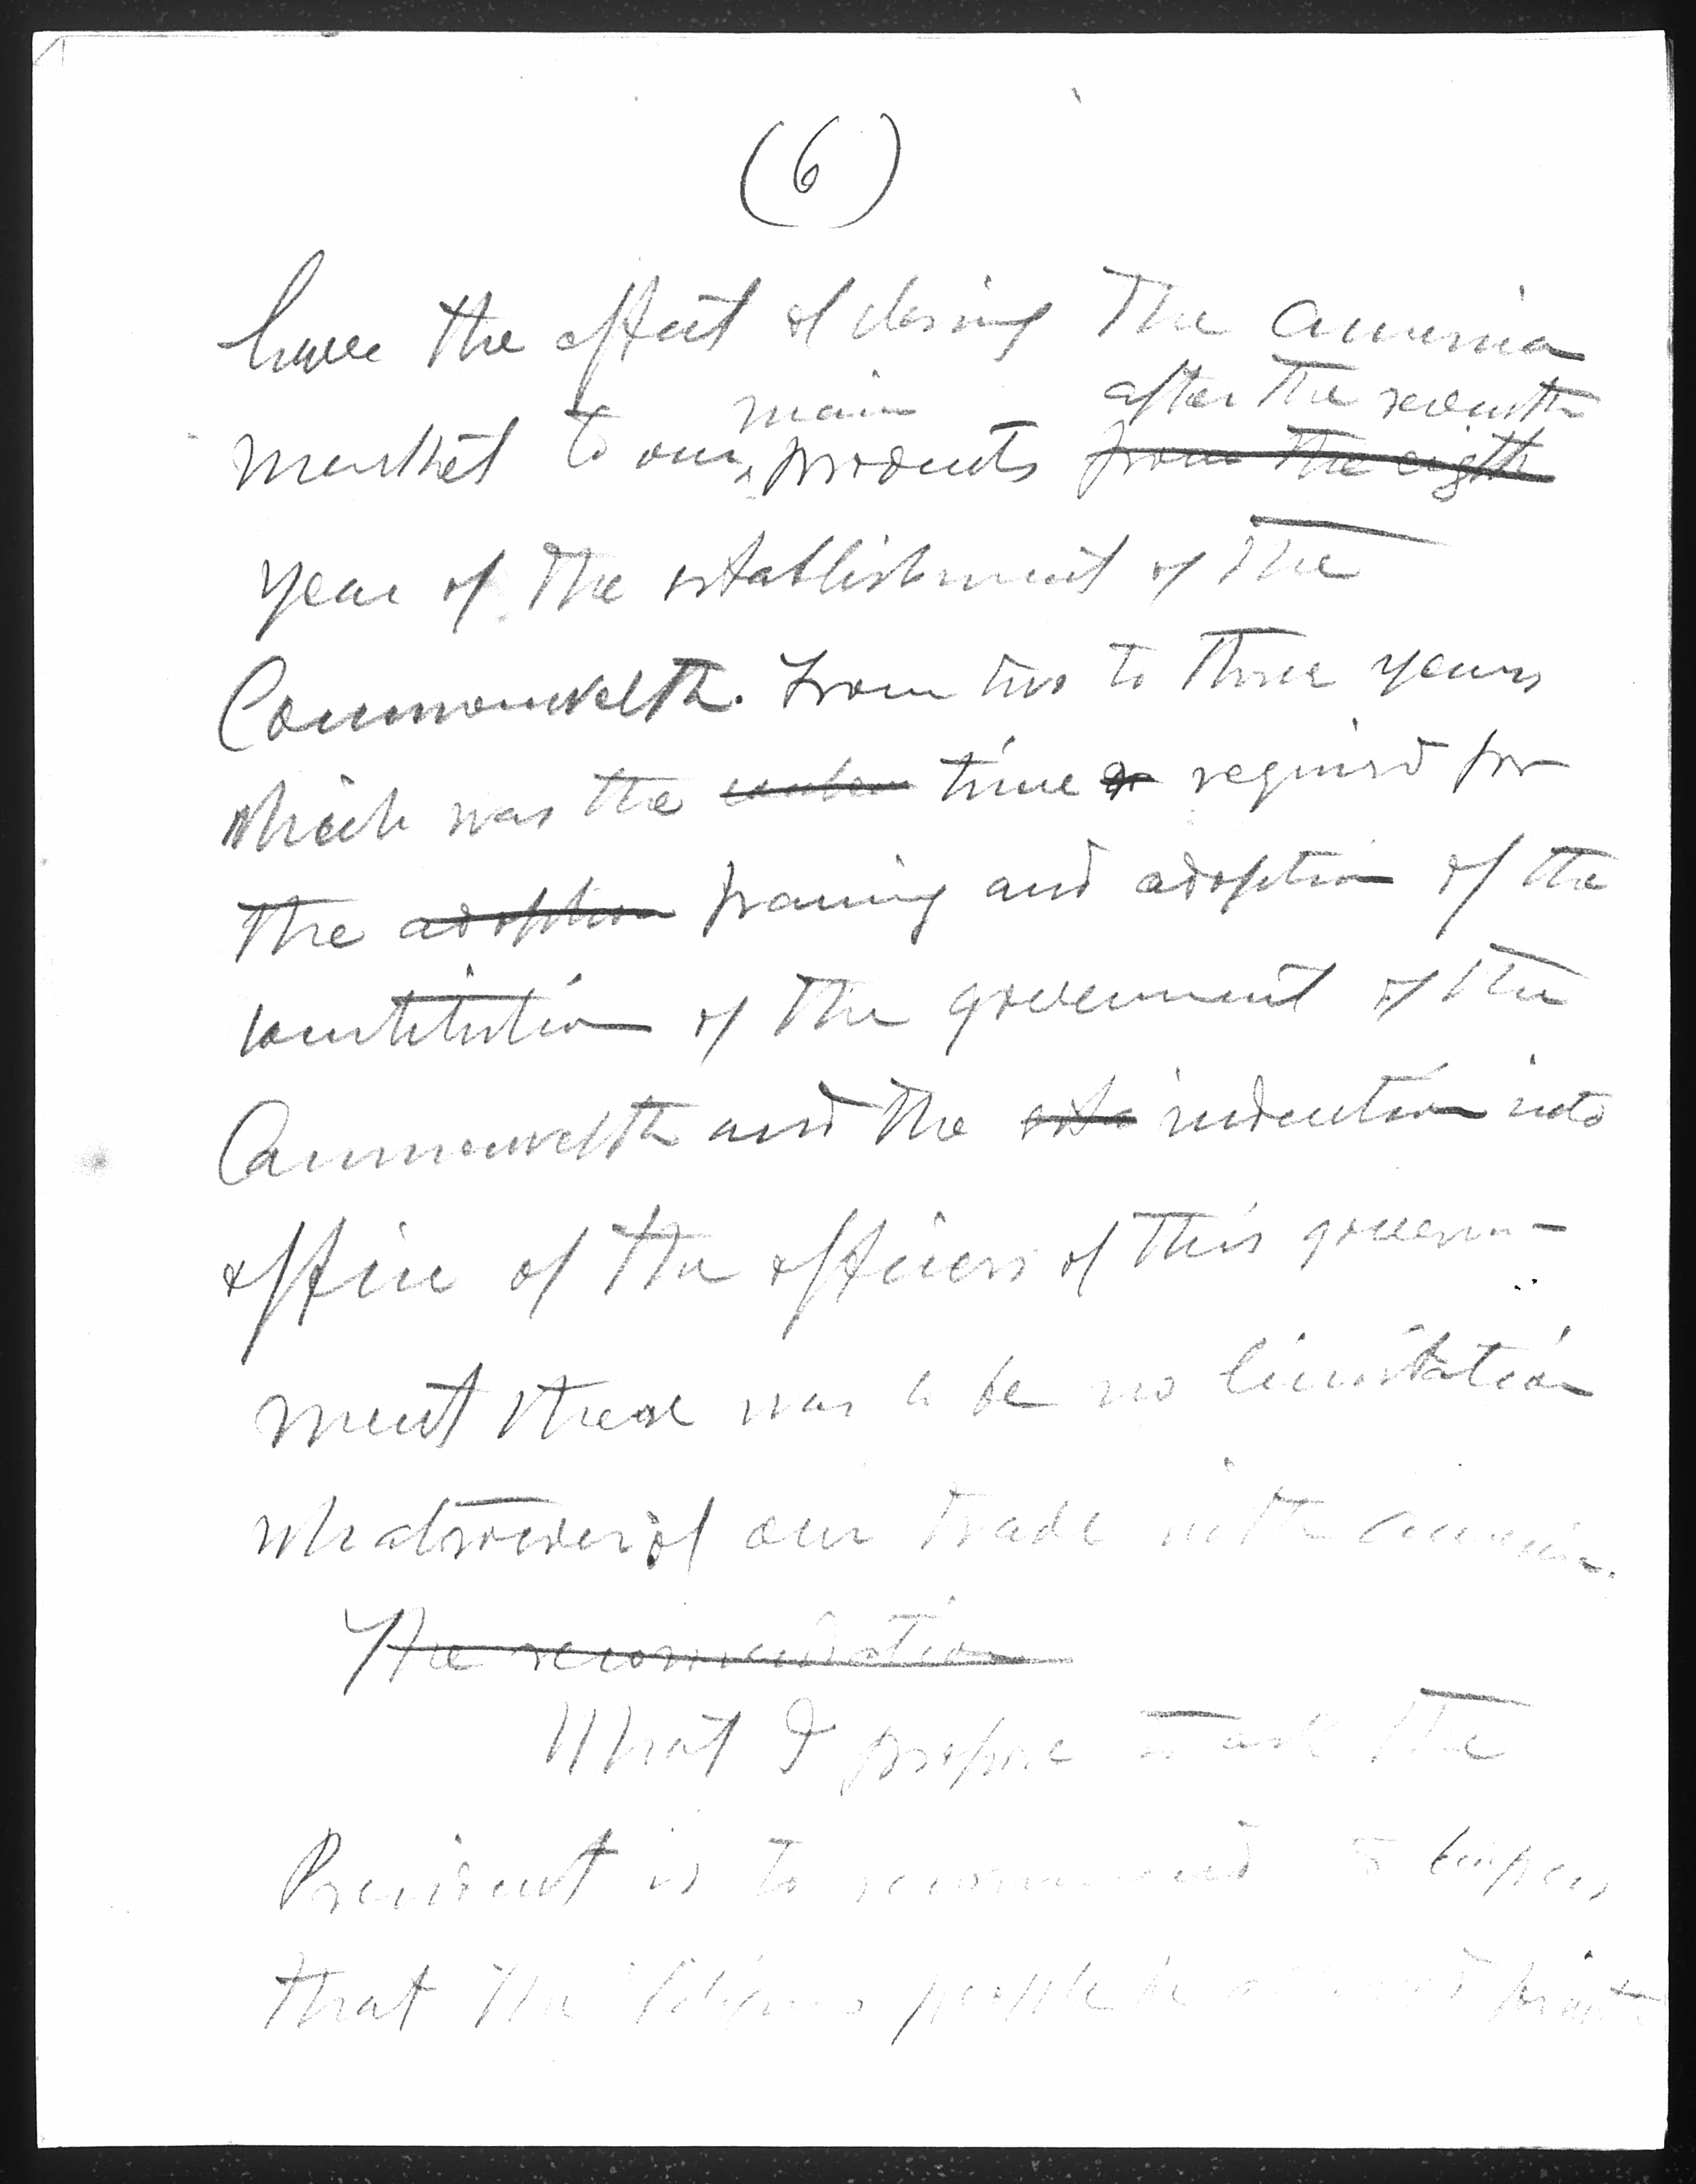 (6)
have the effect of closing the America
main after the seventh
market to our products from the eigth
year of the establishment of the
Commonwelth. From two to three years
which was the time or required for
the adoption framing and adoption of the
constitution of the government of the
Commonwelth and the induction into
office of the officers of this govern-
ment there was to be no limitation
whatsoever of our trade with America.
The recommendation
What I propose to ask the
President is to recommend to Congress
that the Filipino people be